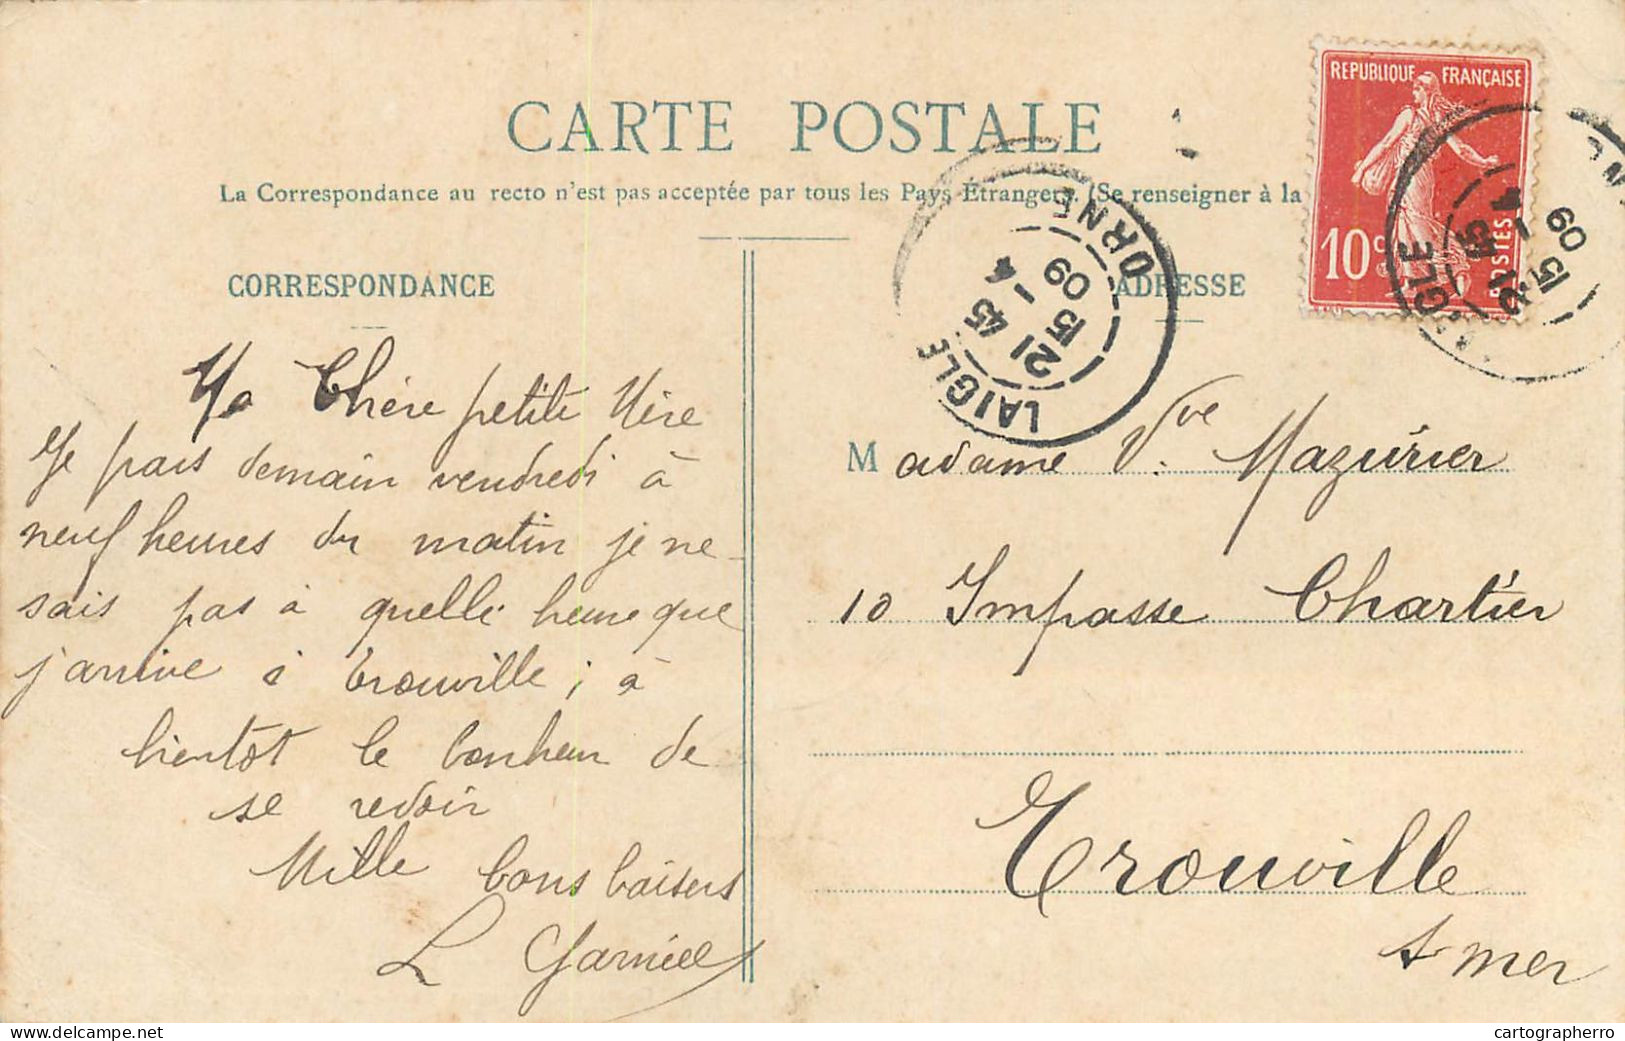 CARTE POSTALE
La Correspondance au recto n'est pas acceptée par tous les Pays Etrangers. (Se renseigner à la
CORRESPONDANCE
Ma Chère petite Mère
Je pars demain vendredi à
neuf heures du matin je ne
sais pas à quelle heure que
j'arrive à Trouville ; à
bientôt le bonheur de
se revoir
Mille bons baisers
L
ADRESSE
Madame Vve Mazurier
10 Impasse Chartier
Trouville
s mer
REPUBLIQUE FRANÇAISE
10c
POSTES
LAIGLE
ORNE
21 45
15 - 4
09
21 45
15 - 4
09
delcampe.net
cartographerro